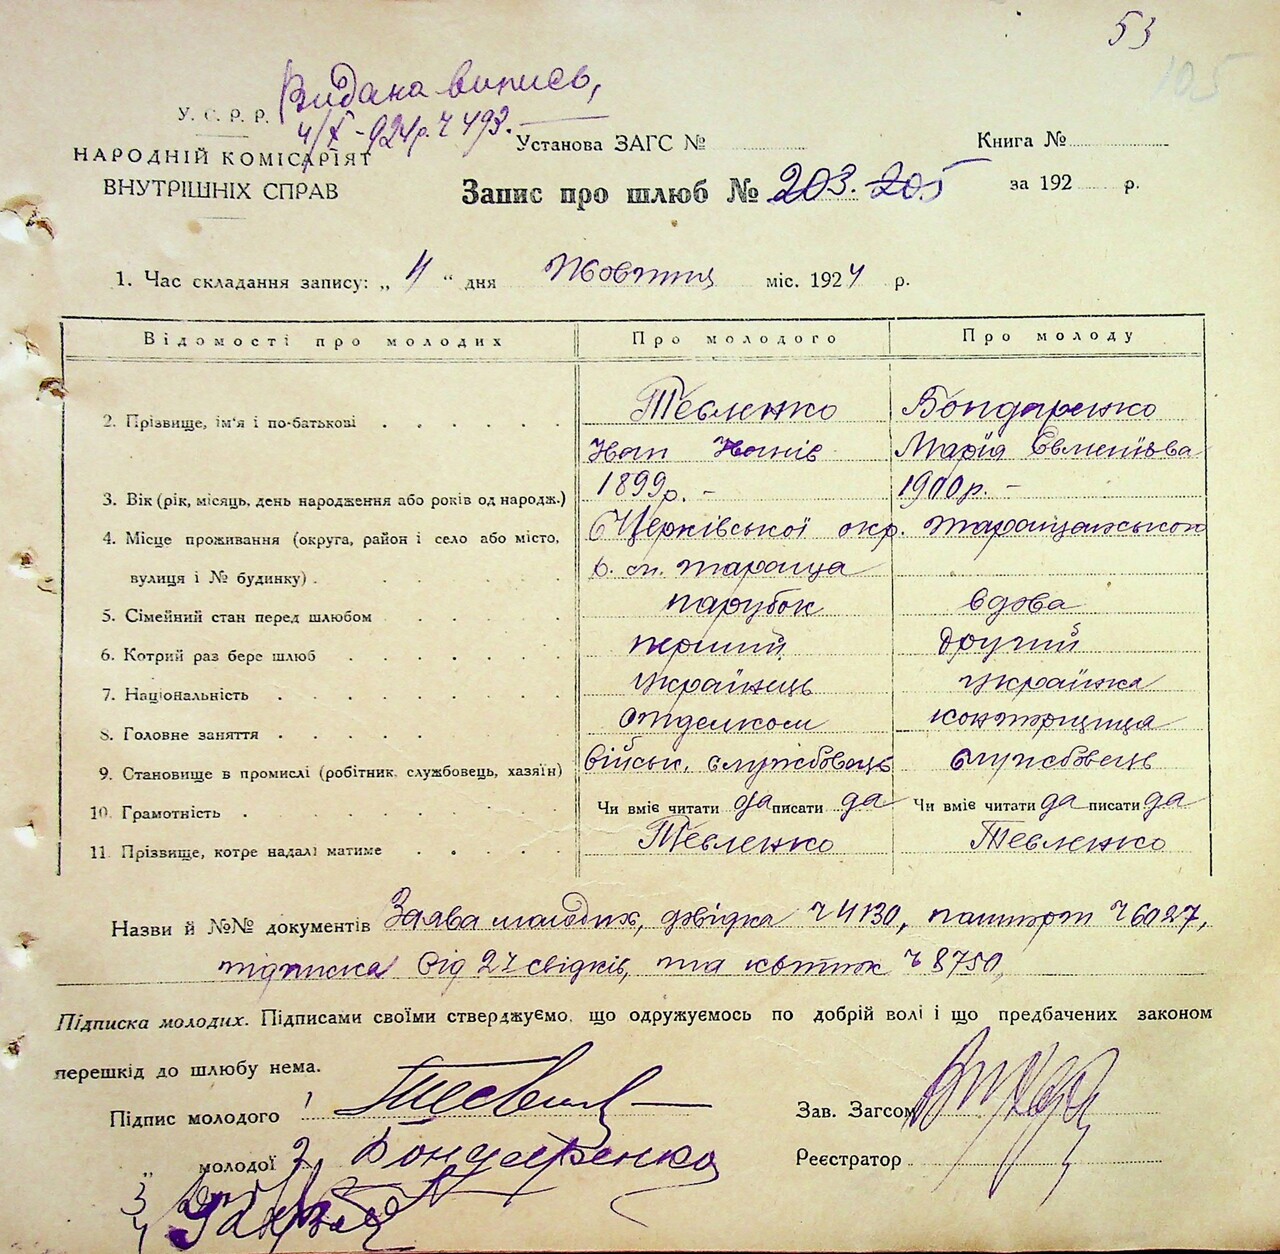 53
105
Видана випись,
4/X - 924р. Ч 493.
У. С. Р. Р.
НАРОДНІЙ КОМІСАРІЯТ
ВНУТРІШНІХ СПРАВ
Установа ЗАГС №
Книга №
Запис про шлюб № 203. 205
за 192 р.
1. Час складання запису: „ 4 “ дня Жовтня міс. 1924 р.
Відомості про молодих Про молодого Про молоду
2. Прізвище, ім'я і по-батькові Тевленко Бондаренко
Іван Іванів Марія Євменієва
3. Вік (рік, місяць, день народження або років од народж.) 1899р. - 1900р. -
4. Місце проживання (округа, район і село або місто, Черківської окр. таращанського
вулиця і № будинку) р. м. тараща
5. Сімейний стан перед шлюбом парубок вдова
6. Котрий раз бере шлюб перший другий
7. Національність українець українка
8. Головне заняття отделком конторщица
9. Становище в промислі (робітник, службовець, хазяїн) військ. службовець службовець
10. Грамотність Чи вміє читати да писати да Чи вміє читати да писати да
11. Прізвище, котре надалі матиме Тевленко Тевленко
Назви й №№ документів Заява молодих, довідка Ч 4130, пашпорт Ч 6027,
підписка від 2х свідків, та квиток Ч 8750,
Підписка молодих. Підписами своїми стверджуємо, що одружуємось по добрій волі і що предбачених законом
перешкід до шлюбу нема.
Підпис молодого 1 Тевлен
Зав. Загсом
„ молодої 2, Бондаренко
Реєстратор
3
4